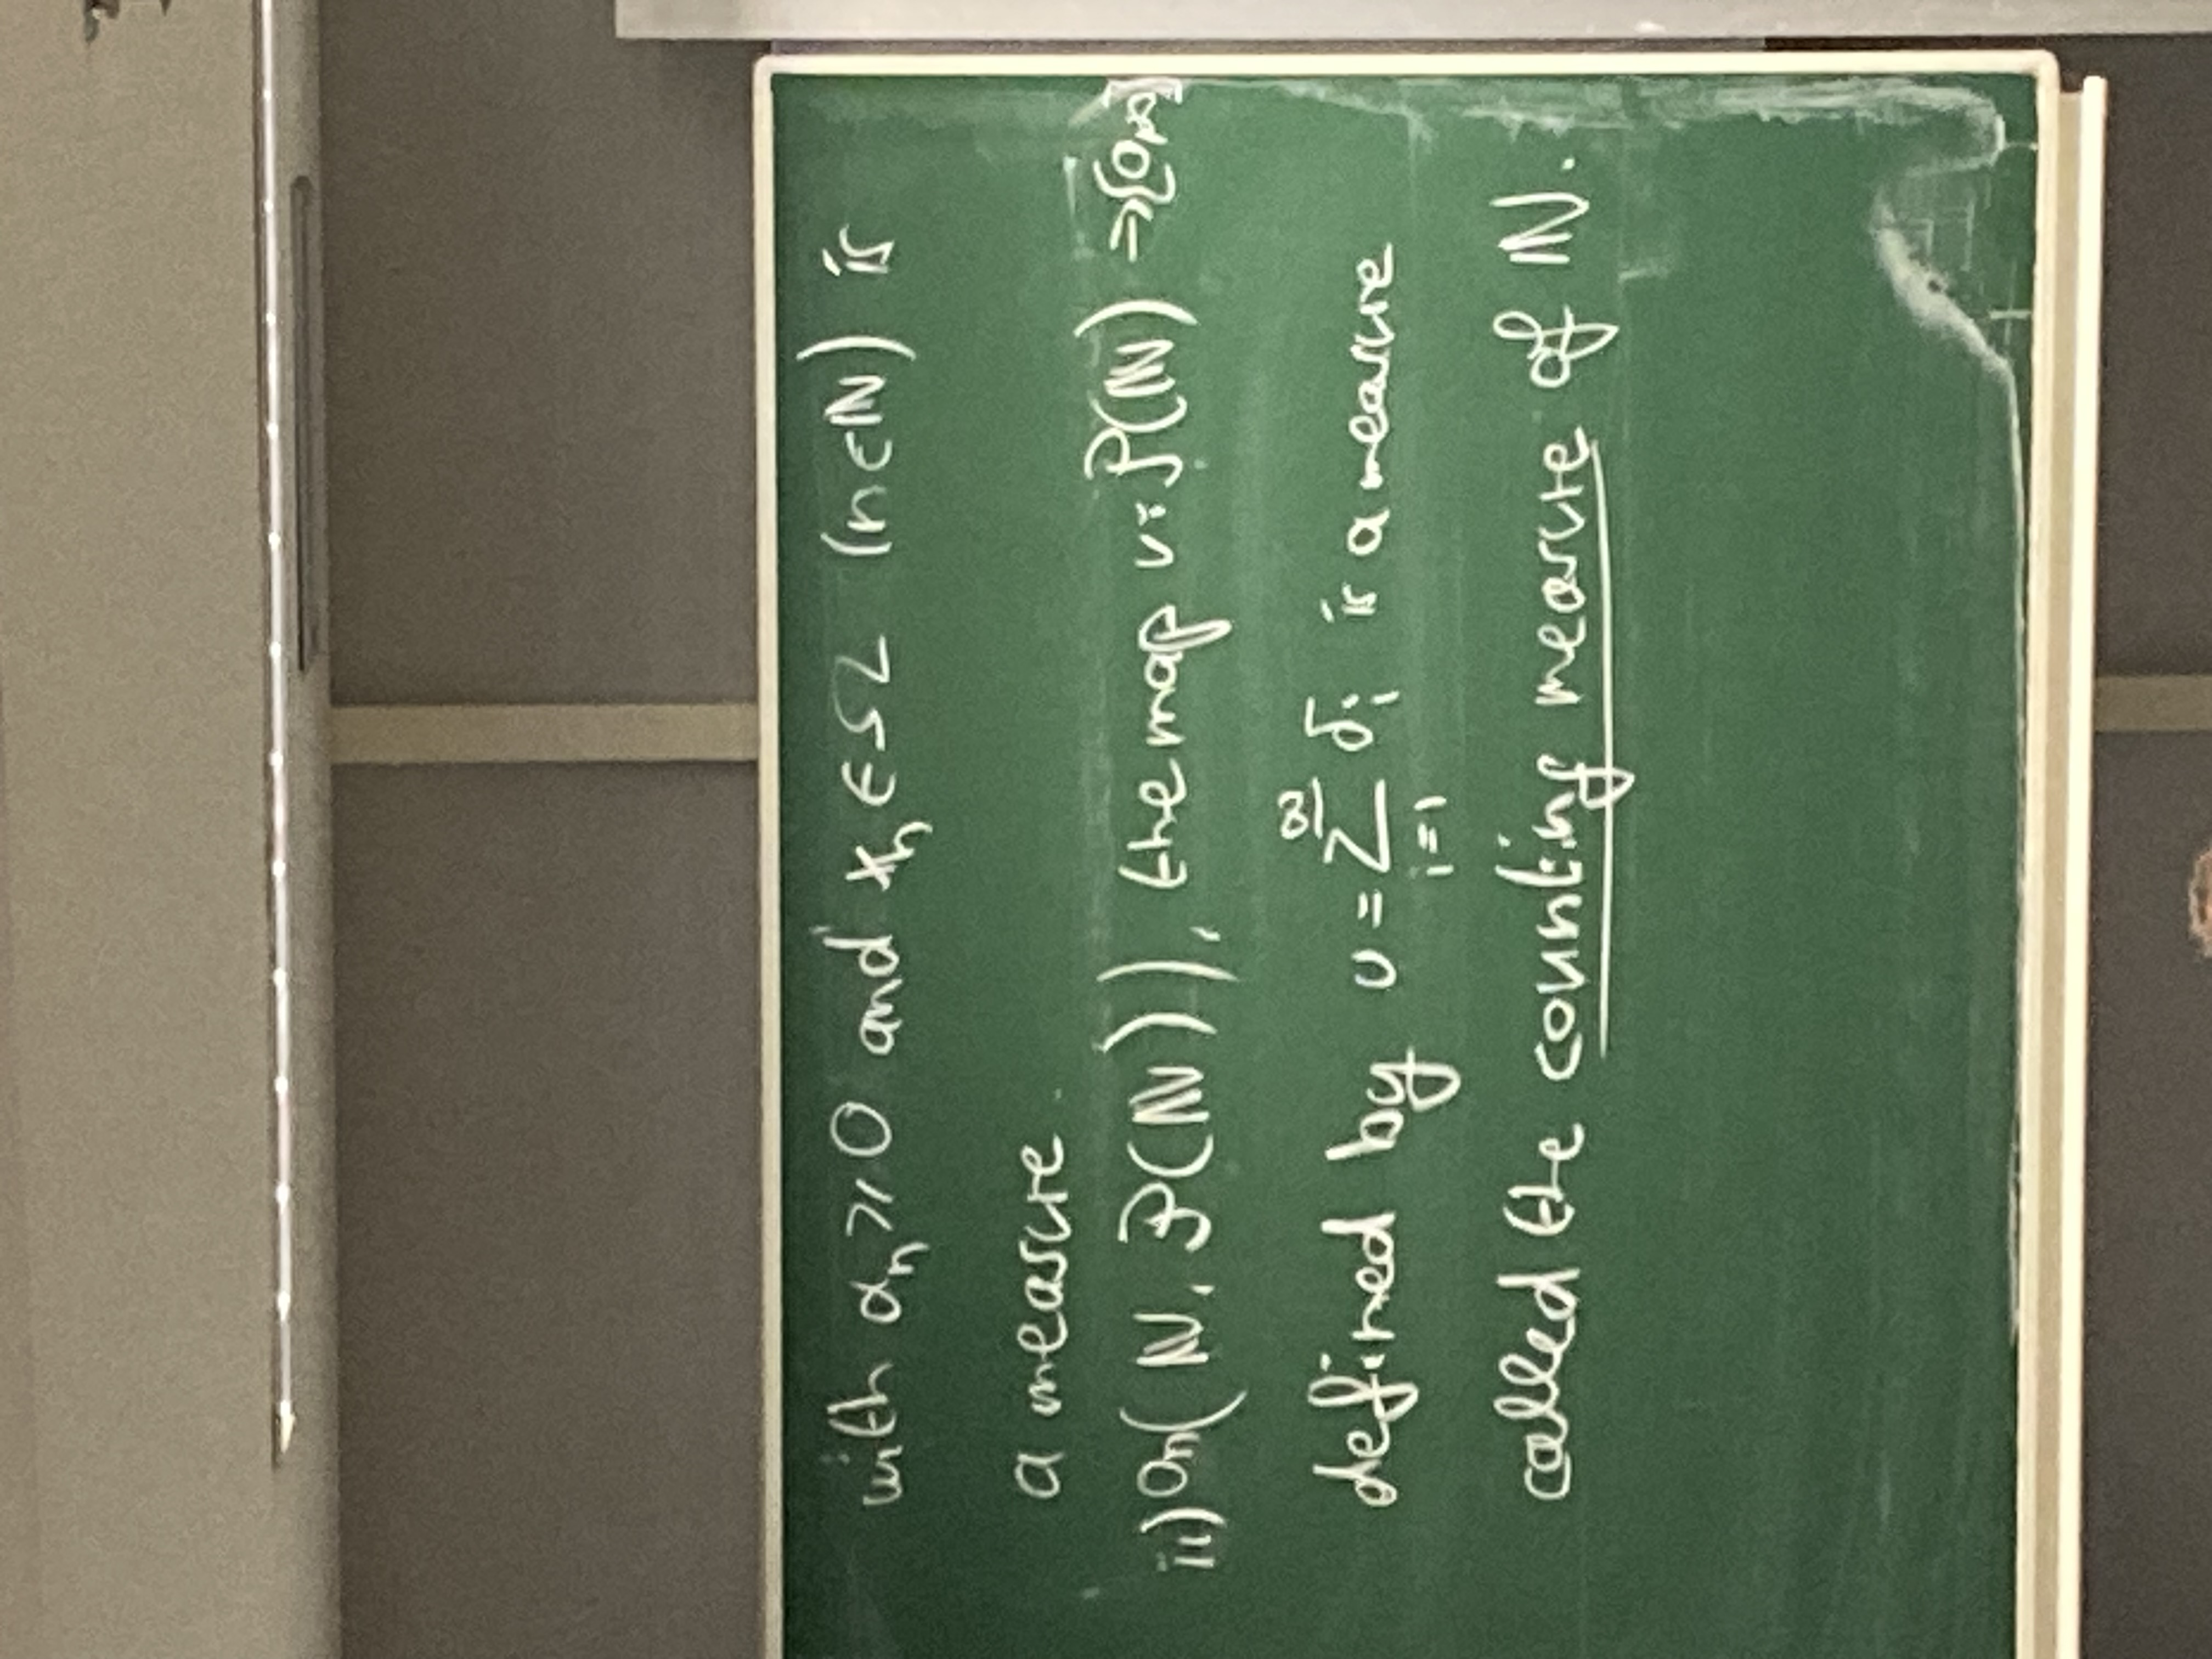 with αₙ ≥ 0 and xₙ ∈ Ω (n ∈ ℕ) is
a measure.
ii) On (ℕ, 𝒫(ℕ)), the map ν: 𝒫(ℕ) → [0,∞]
defined by ν = ∑_{i=1}^{∞} δᵢ is a measure
called the counting measure of ℕ.